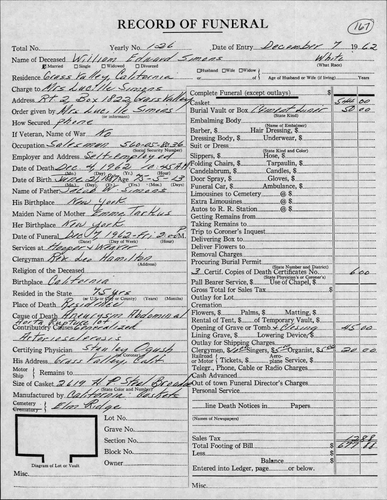 RECORD OF FUNERAL
167
Total No. Yearly No. 126 Date of Entry December 7 1962
Name of Deceased William Edward Simons White
Married Single Widowed Divorced (What Race)
Residence Grass Valley, California Husband Wife Widow or Age of Husband or Wife (if living) Years
Charge to Mrs Lucille Simons
Address Rt 2 Box 1822 Grass Valley
Order given by Mrs Lucille Simons
How Secured Phone
If Veteran, Name of War No
Occupation Salesman
(Social Security Number)
Employer and Address Self-Employed
Date of Death Dec 4, 1962 10:45 AM
Date of Birth
Name of Father Simons
His Birthplace New York
Maiden Name of Mother Emma
Her Birthplace New York
Date of Funeral Dec 7 1962 Fri. 2:00 PM
Services at Hooper & Weaver
Clergyman Rev Leo Hamilton
Religion of the Deceased
Birthplace California
Resided in the State 75 yrs
Place of Death
Cause of Death Aneurysm Abdominal
Aorta
Contributory Causes Generalized
Arteriosclerosis
Certifying Physician Stanley
His Address Grass Valley, Calif
Motor Ship Remains to
Size of Casket 2619
(State Color and Number)
Manufactured by California Casket
Cemetery Crematory Elm Ridge
Lot No.
Grave No.
Section No.
Block No.
Owner
Diagram of Lot or Vault
Misc.
Complete Funeral (except outlays)
Casket
Burial Vault or Box
(State Kind)
Embalming Body
(Name of Embalmer)
Barber, $ Hair Dressing, $
Dressing Body, $ Underwear, $
Suit or Dress
(State Kind and Color)
Slippers, $ Hose, $
Folding Chairs, $ Tarpaulin, $
Candelabrum, $ Candles, $
Door Spray, $ Gloves, $
Funeral Car, $ Ambulance, $
Limousines to Cemetery @ $
Extra Limousines @ $
Autos to R. R. Station @ $
Getting Remains from
Taking Remains to
Trip to Coroner's Inquest
Delivering Box to
Deliver Flowers to
Removal Charges
Procuring Burial Permit
(State Number and District)
3 Certif. Copies of Death Certificates No. 6 00
Pall Bearer Service, $ Use of Chapel, $
Gross Total for Sales Tax $
Outlay for Lot
Cremation
Flowers, $ Palms, $ Matting, $
Rental of Tent, $ of Temporary Vault, $
Opening of Grave or Tomb & Closing 45 00
Lining Grave, $ Lowering Device, $
Outlay for Shipping Charges
Clergymen, $ Singers, $ Organist, $5.00 20 00
Rail or Motor Tickets, $ Aero. Service, $
Telegr., Phone, Cable or Radio Charges
Cash Advanced
Out of town Funeral Director's Charges
Personal Service
line Death Notices in Papers
(Names of Newspapers)
Sales Tax
Total Footing of Bill
Less
Balance $
Entered into Ledger, page or below.
Misc.